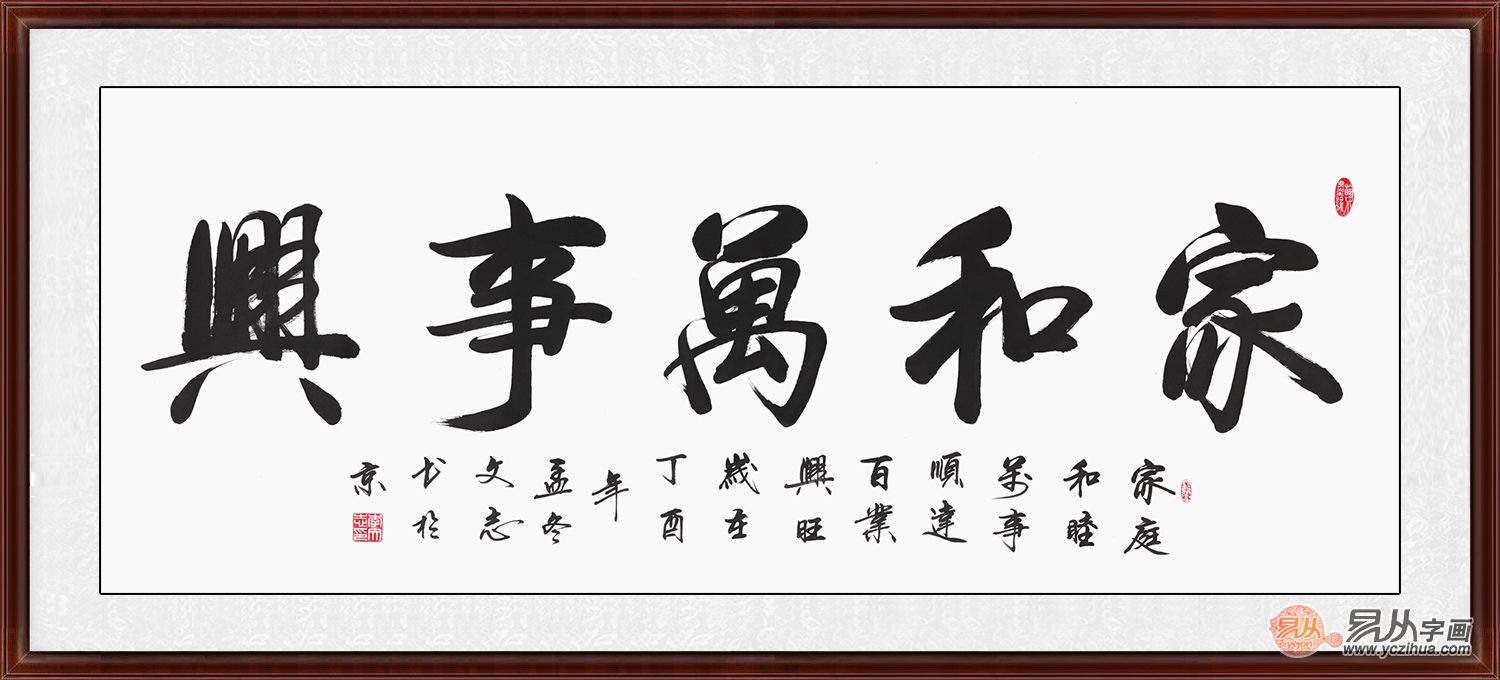 家和萬事興
家庭
和睦
萬事
順達
百業
興旺
歲在
丁酉
年
孟冬
文志
书於
京
易从
yicong
易从字画
www.yczihua.com